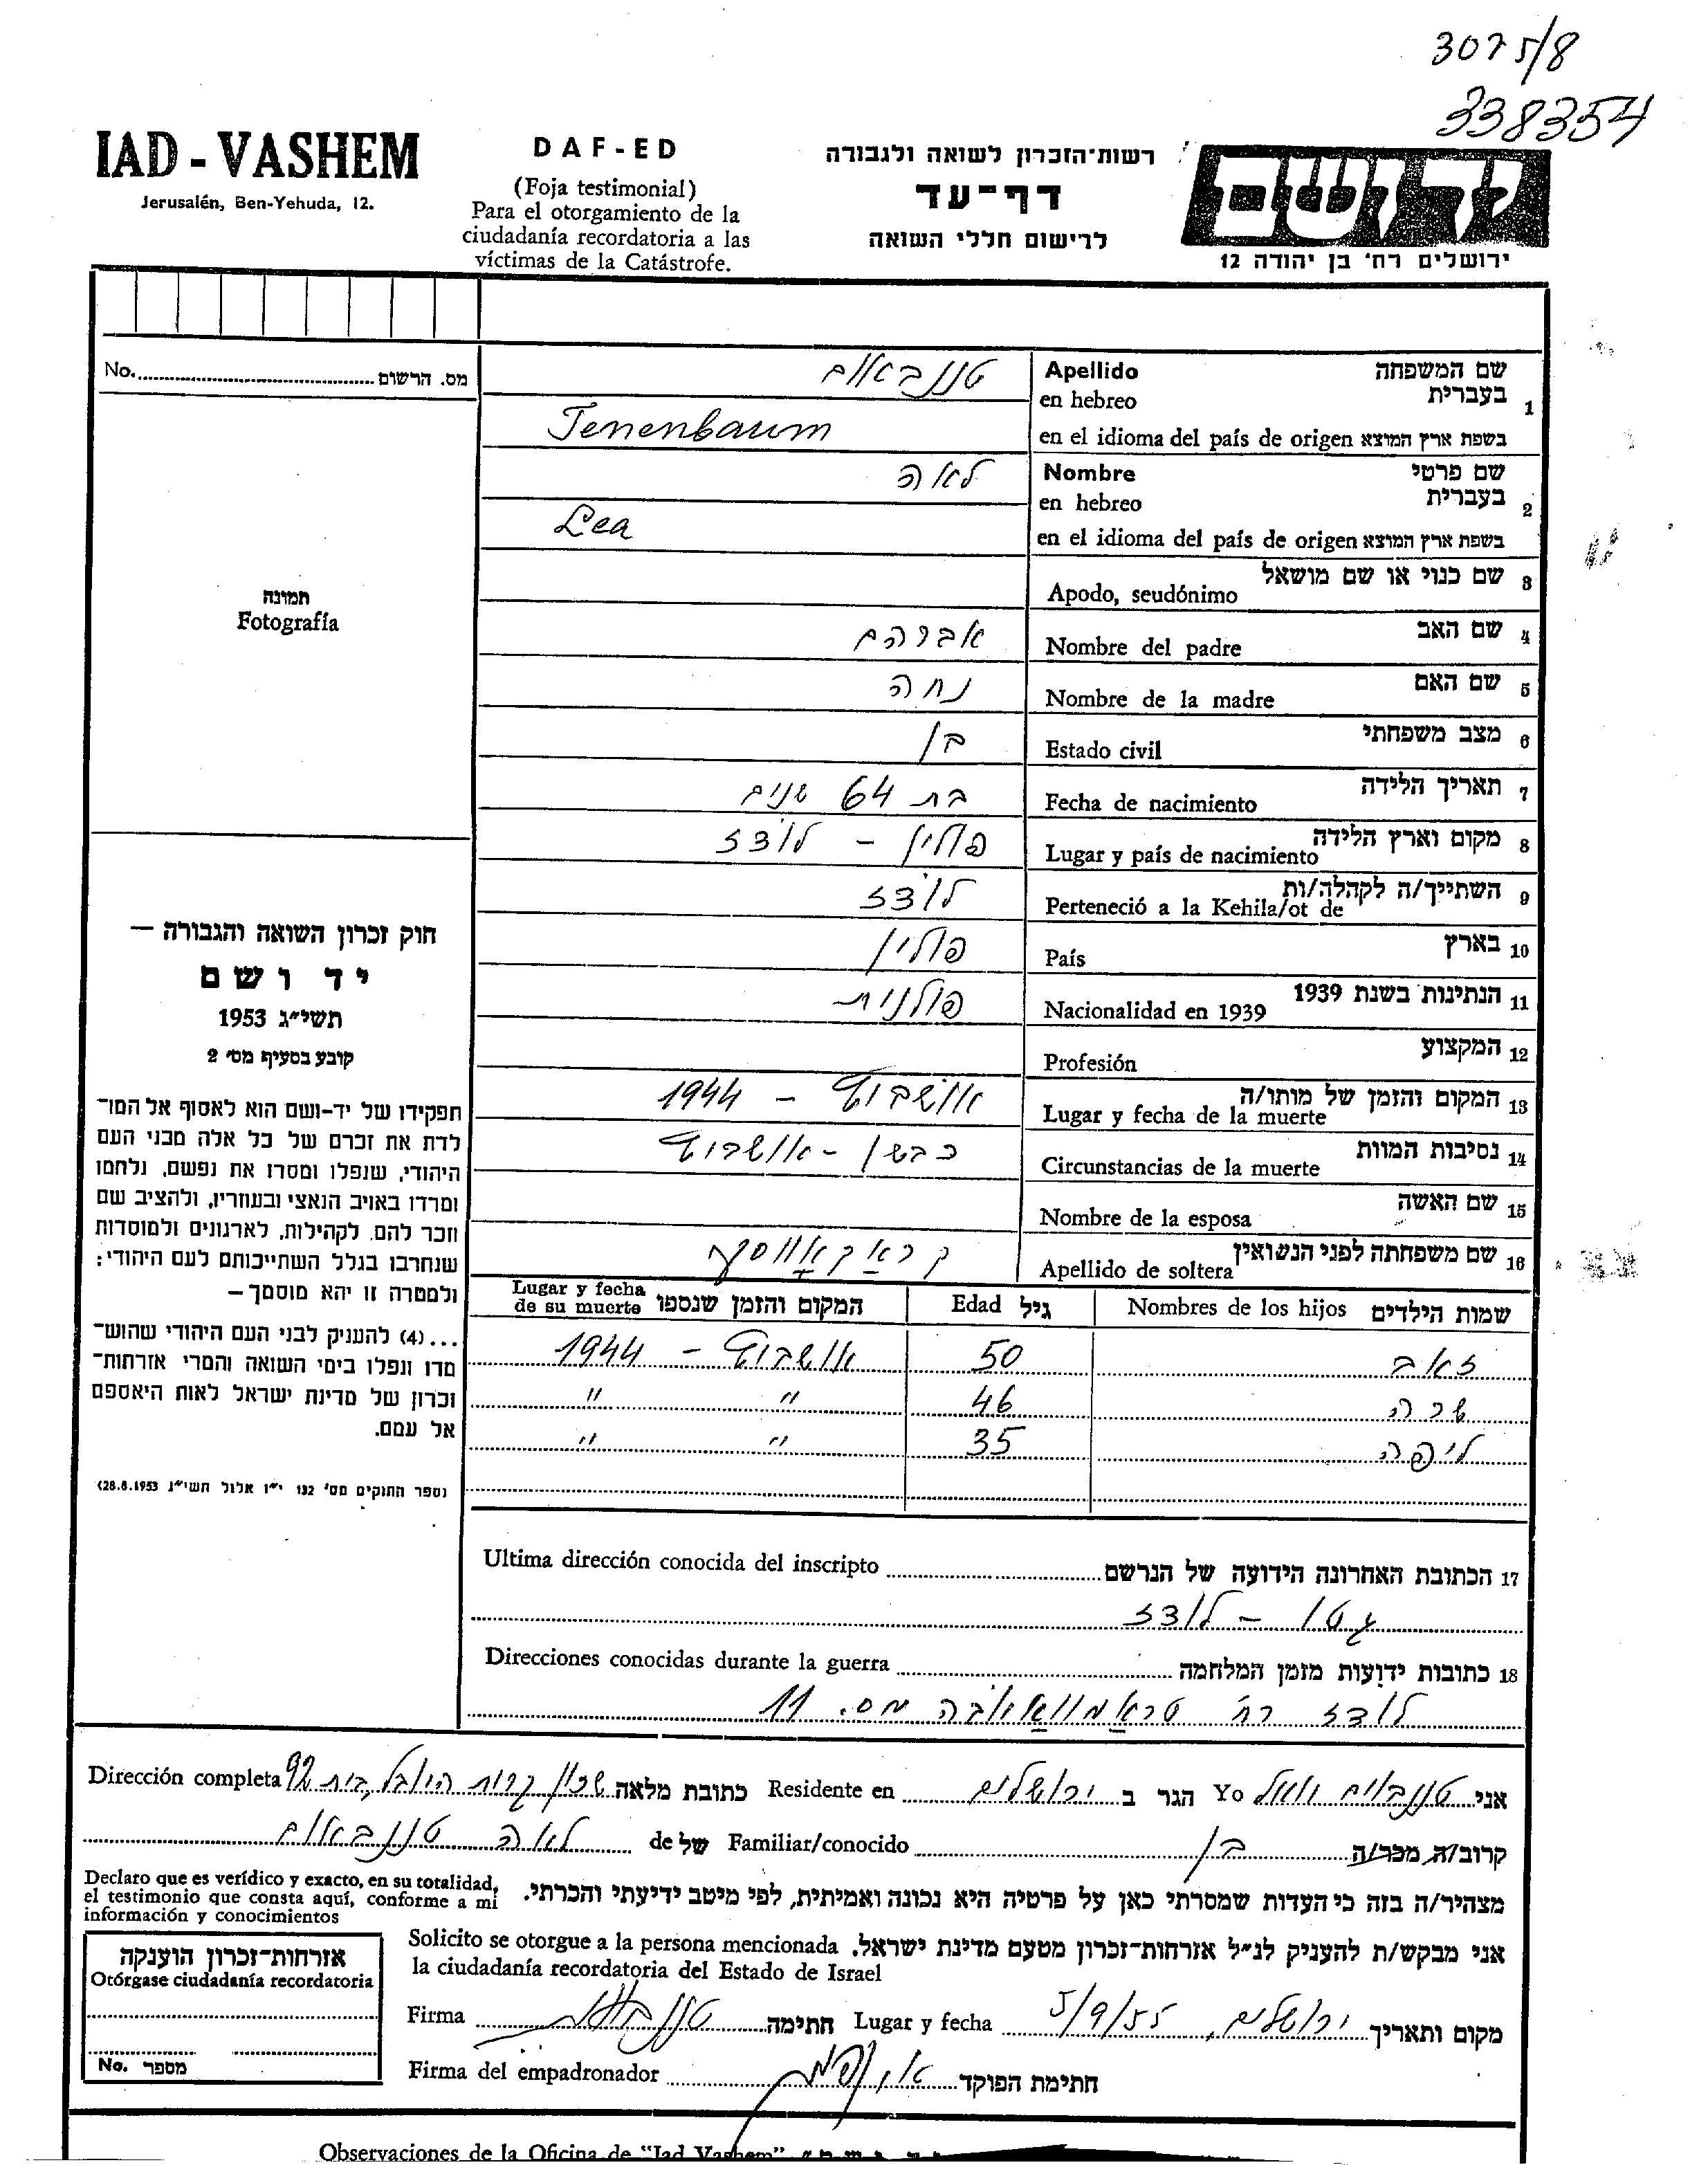 3075/8
338354
IAD - VASHEM
Jerusalén, Ben-Yehuda, 12.
DAF-ED
(Foja testimonial)
Para el otorgamiento de la
ciudadanía recordatoria a las
víctimas de la Catástrofe.
רשות־הזכרון לשואה ולגבורה
דף־עד
לרישום חללי השואה
יד ושם
ירושלים רח׳ בן יהודה 12
No. מס. הרשום
תמונה
Fotografía
שם המשפחה Apellido
1 בעברית en hebreo טננבאום
בשפת ארץ המוצא en el idioma del país de origen Tenenbaum
שם פרטי Nombre
2 בעברית en hebreo לאה
בשפת ארץ המוצא en el idioma del país de origen Lea
3 שם כנוי או שם מושאל Apodo, seudónimo
4 שם האב Nombre del padre אברהם
5 שם האם Nombre de la madre נחה
6 מצב משפחתי Estado civil
7 תאריך הלידה Fecha de nacimiento בת 64 שנים
8 מקום וארץ הלידה Lugar y país de nacimiento פולין - לודז
9 השתייך/ה לקהלה/ות Perteneció a la Kehila/ot de לודז
10 בארץ País פולין
11 הנתינות בשנת 1939 Nacionalidad en 1939 פולנית
12 המקצוע Profesión
13 המקום והזמן של מותו/ה Lugar y fecha de la muerte אושביץ - 1944
14 נסיבות המוות Circunstancias de la muerte כבשן - אושביץ
15 שם האשה Nombre de la esposa
16 שם משפחתה לפני הנשואין Apellido de soltera
שמות הילדים Nombres de los hijos גיל Edad המקום והזמן שנספו Lugar y fecha de su muerte
זאב 50 אושביץ - 1944
שרה 46 " "
ליפה 35 " "
חוק זכרון השואה והגבורה —
יד ושם
תשי״ג 1953
קובע בסעיף מס׳ 2
תפקידו של יד-ושם הוא לאסוף אל המו־
לדת את זכרם של כל אלה מבני העם
היהודי, שנפלו ומסרו את נפשם, נלחמו
ומרדו באויב הנאצי ובעוזריו, ולהציב שם
וזכר להם, לקהילות, לארגונים ולמוסדות
שנחרבו בגלל השתייכותם לעם היהודי:
ולמטרה זו יהא מוסמך—
...(4) להעניק לבני העם היהודי שהוש־
מדו ונפלו בימי השואה והמרי אזרחות־
זכרון של מדינת ישראל לאות היאספם
אל עמם.
(ספר החוקים מס׳ 132 י״ז אלול תשי״ג 28.8.1953)
17 הכתובת האחרונה הידועה של הנרשם Ultima dirección conocida del inscripto
גטו - לודז
18 כתובות ידועות מזמן המלחמה Direcciones conocidas durante la guerra
לודז רח׳ טראמוואיובה מס. 11
אני טננבוים Yo הגר ב ירושלים Residente en כתובת מלאה שכון קרית היובל, בית 92 Dirección completa
קרוב/ה מכר/ה בן Familiar/conocido של de לאה טננבאום
מצהיר/ה בזה כי העדות שמסרתי כאן על פרטיה היא נכונה ואמיתית, לפי מיטב ידיעתי והכרתי.
Declaro que es verídico y exacto, en su totalidad,
el testimonio que consta aquí, conforme a mi
información y conocimientos
אני מבקש/ת להעניק לנ״ל אזרחות־זכרון מטעם מדינת ישראל. Solicito se otorgue a la persona mencionada
la ciudadanía recordatoria del Estado de Israel
מקום ותאריך ירושלים, 5/9/55 Lugar y fecha חתימה Firma
חתימת הפוקד Firma del empadronador
אזרחות־זכרון הוענקה
Otórgase ciudadanía recordatoria
No. מספר
Observaciones de la Oficina de "Iad Vashem"